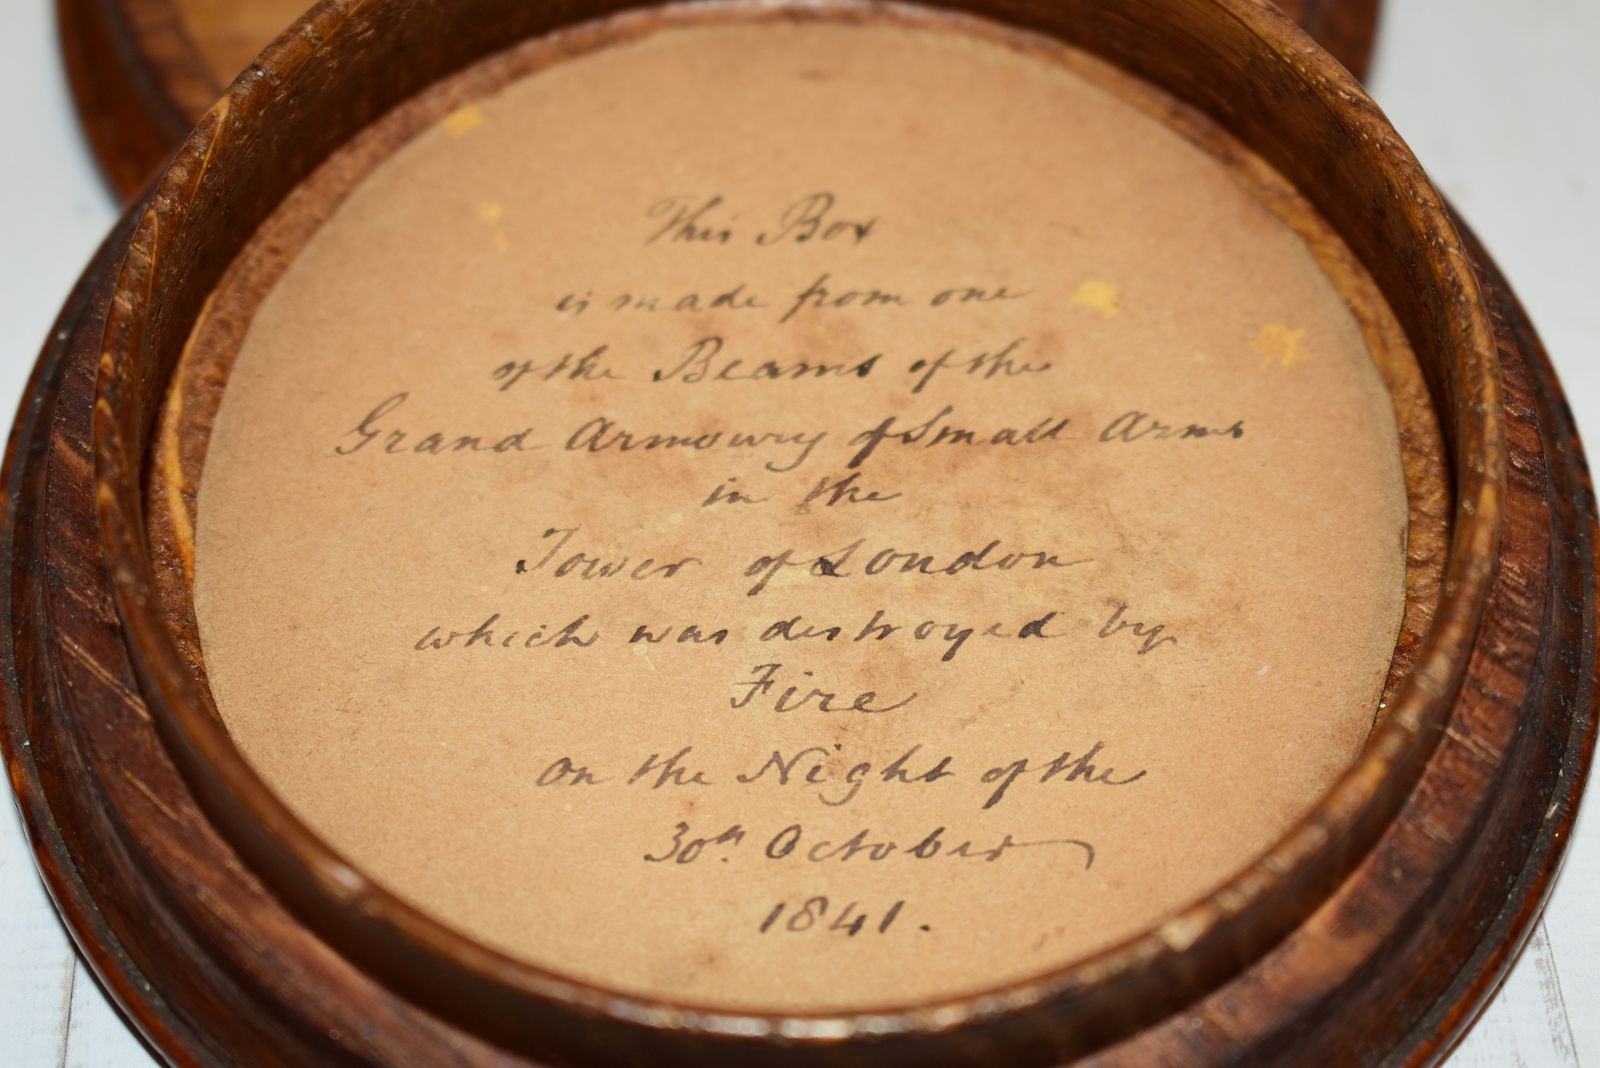 This Box
is made from one
of the Beams of the
Grand Armoury of Small Arms
in the
Tower of London
which was destroyed by
Fire
on the Night of the
30th October
1841.